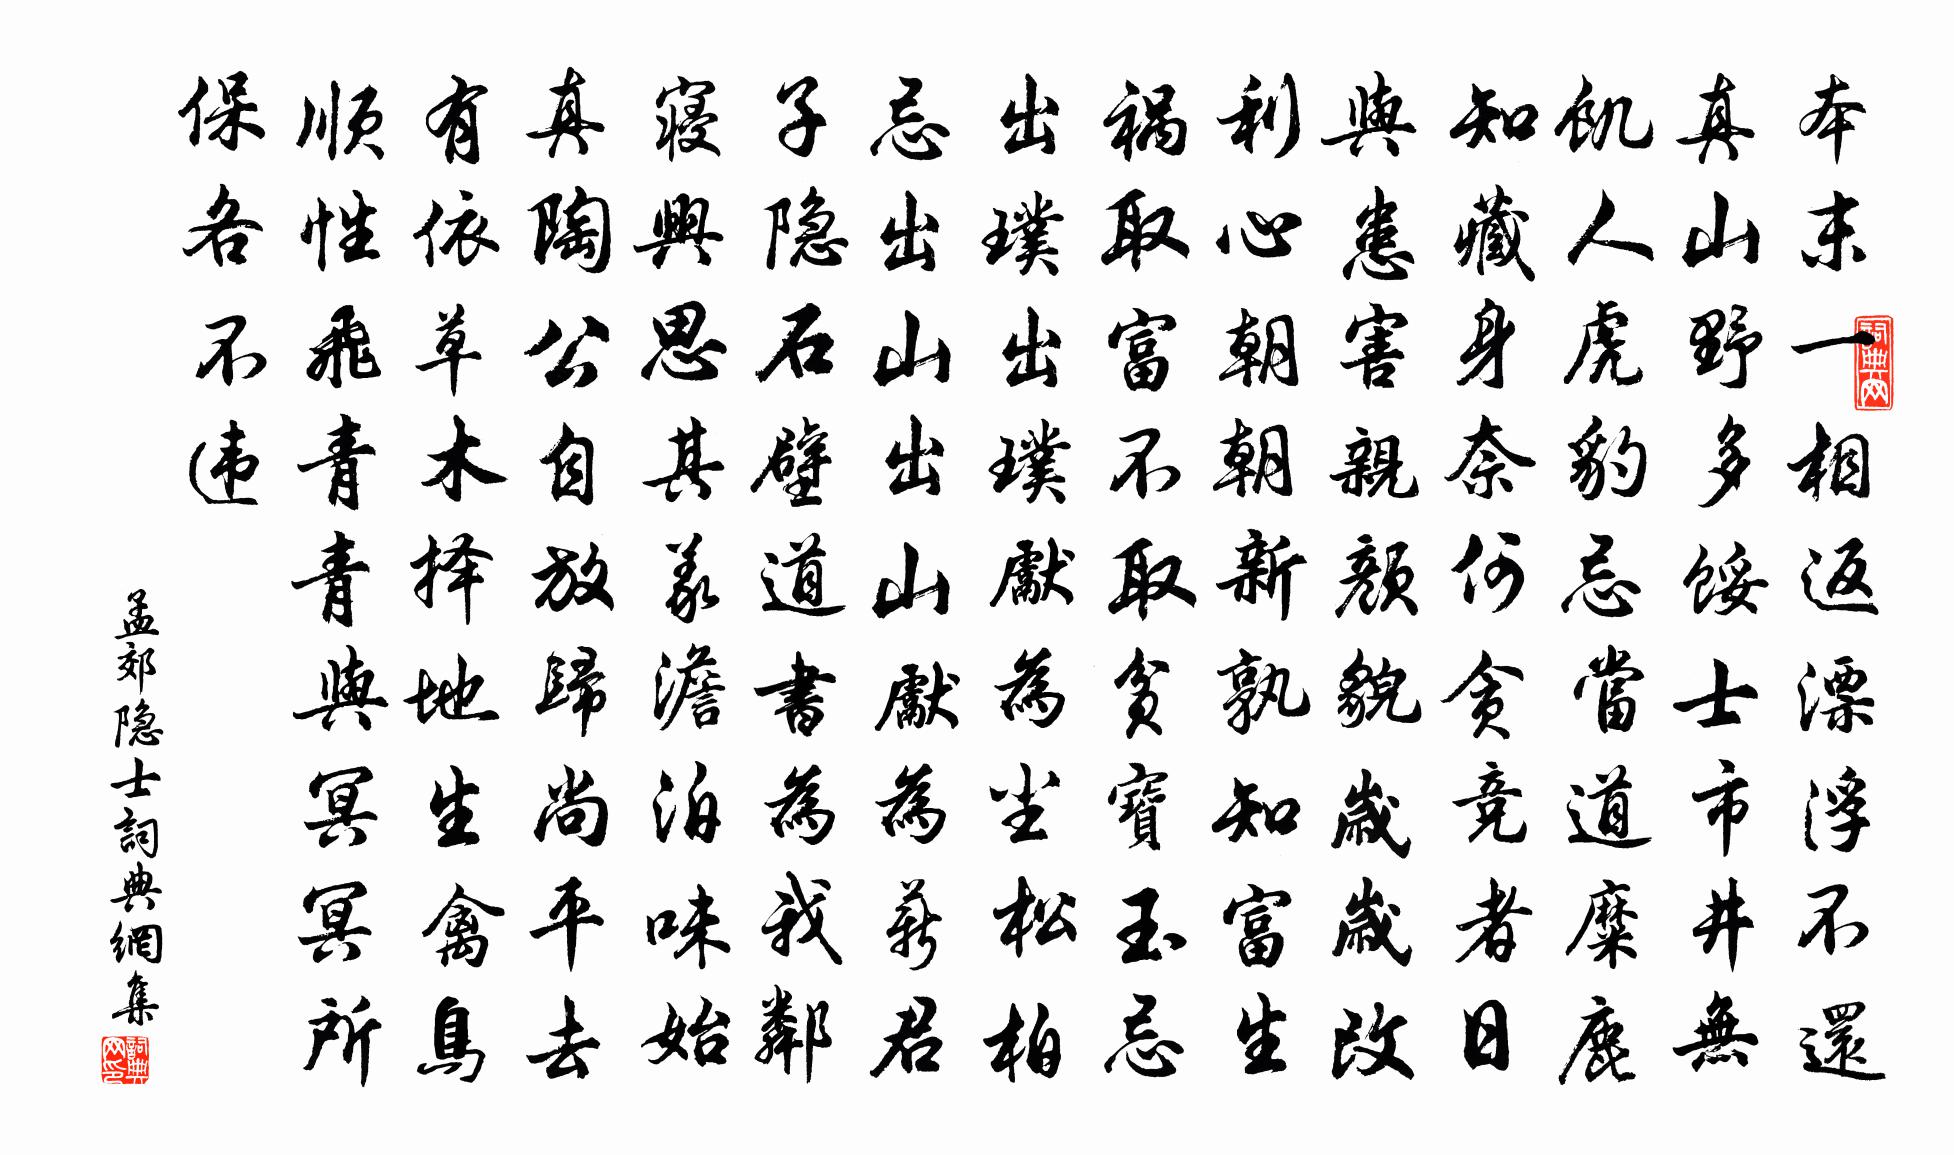 本末一相返漂浮不還
真山野多餒士市井無
飢人虎豹忌當道麋鹿
知藏身奈何貪竞者日
與患害親顏貌歲歲改
利心朝朝新孰知富生
祸取富不取貧寶玉忌
出璞出璞獻為尘松柏
忌出山出山獻為薪君
子隐石壁道書為我鄰
寢興思其義澹泊味始
真陶公自放歸尚平去
有依草木择地生禽鳥
顺性飛青青與冥冥所
保各不违
孟郊隐士詞典網集
詞典网
詞典网印